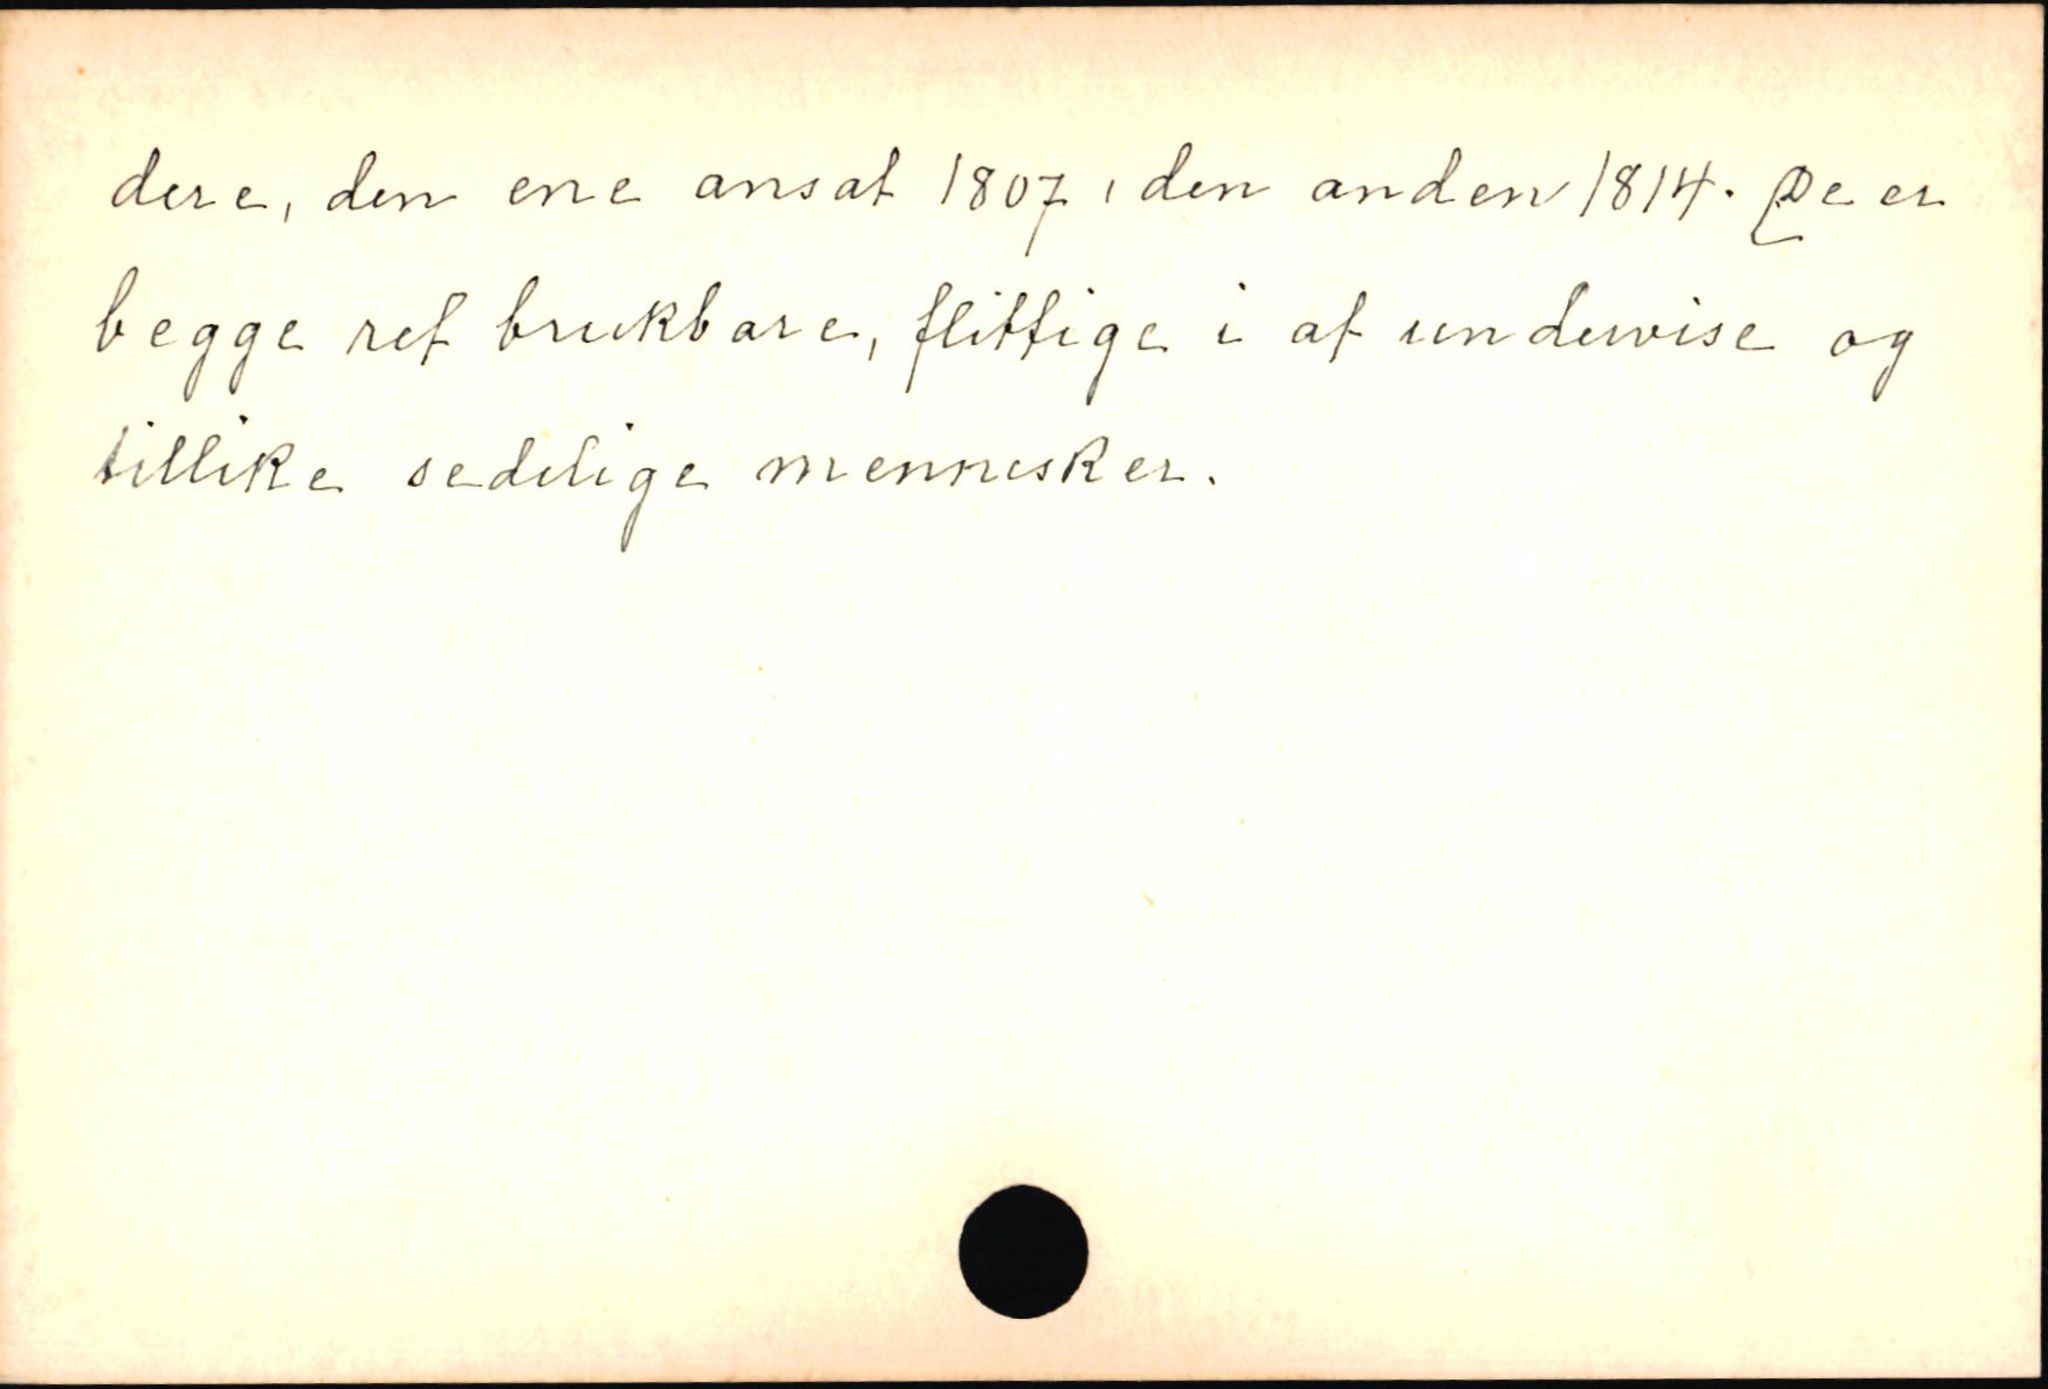 dere, den ene ansat 1807, den anden 1814. De er
begge ret brukbare, flittige i at undervise og
tillike sedelige mennesker.